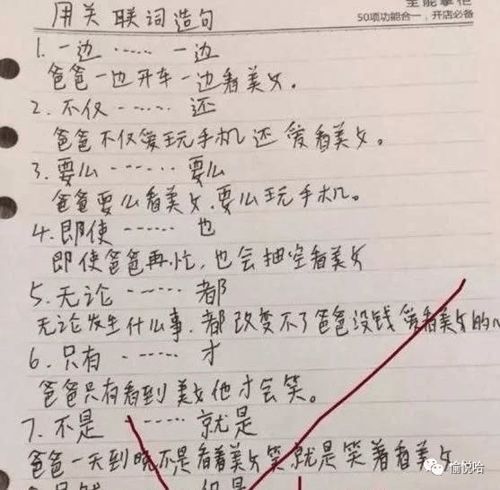 全能掌柜
50项功能合一，开店必备
用关联词造句
1. 一边 …… 一边
爸爸一边开车一边看美女。
2. 不仅 …… 还
爸爸不仅爱玩手机还爱看美女。
3. 要么 …… 要么
爸爸要么看美女，要么玩手机。
4. 即使 …… 也
即使爸爸再忙，也会抽空看美女
5. 无论 …… 都
无论发生什么事，都改变不了爸爸没钱爱看美女的
6. 只有 …… 才
爸爸只有看到美女他才会笑。
7. 不是 …… 就是
爸爸一天到晚不是看着美女笑就是笑着看美女
愉悦哈